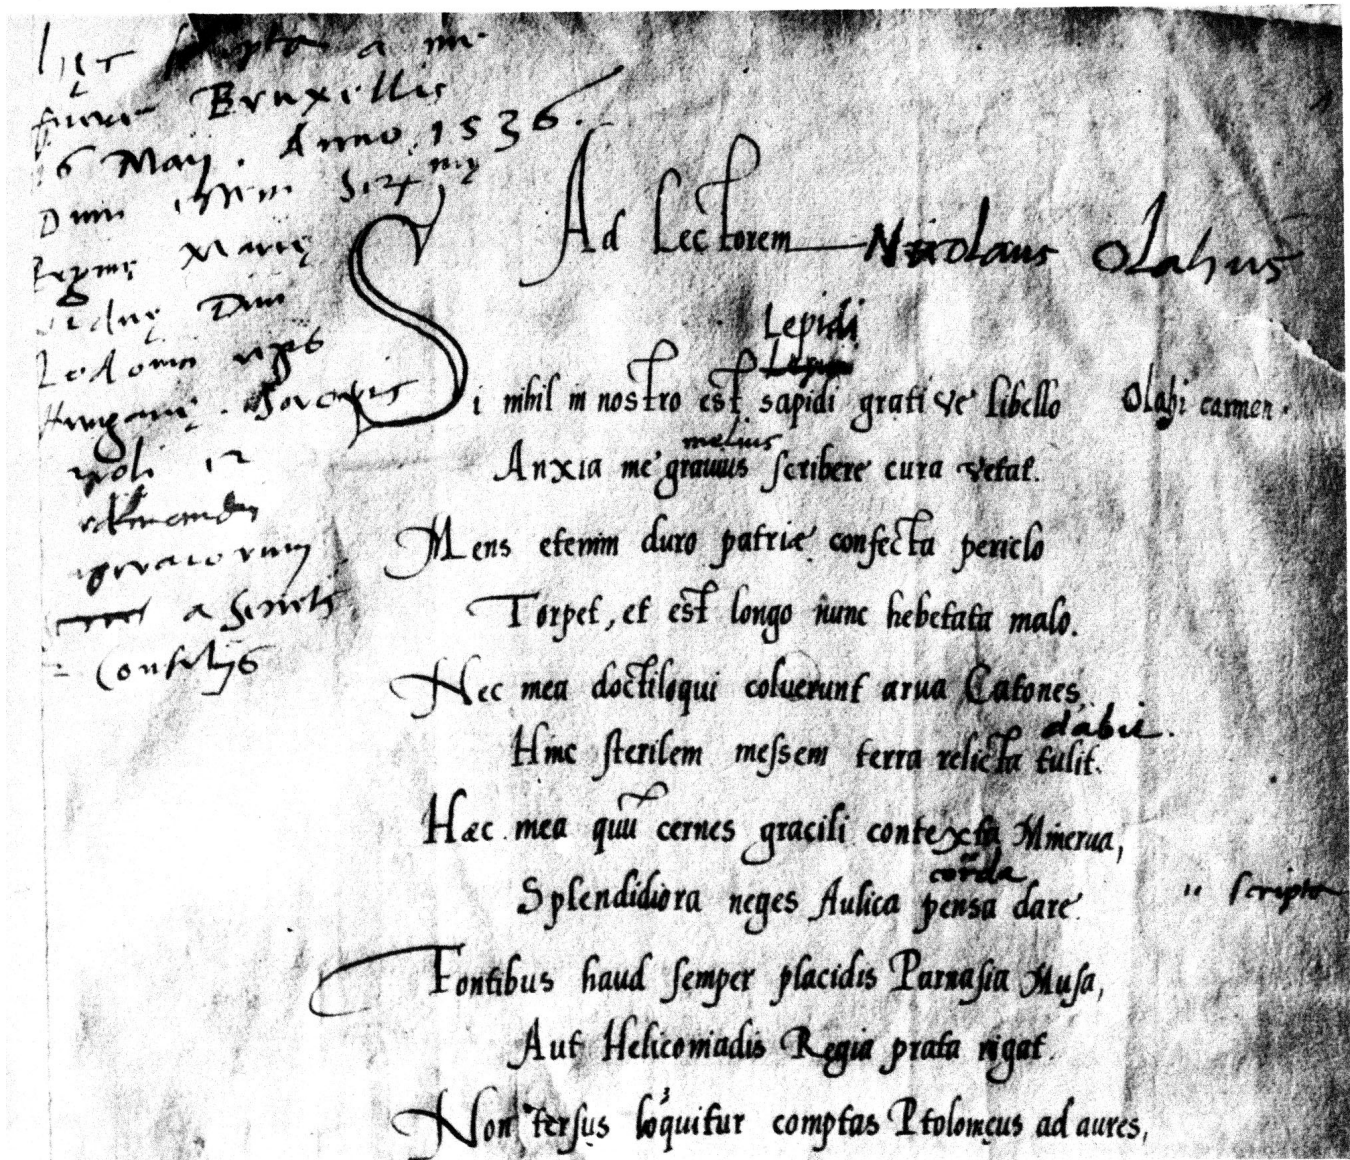 scripta a me
fuere Bruxellis
6 Maij. Anno 1536.
Dum essem Ser^mę
Regine Marię
Viduę Dni
Lodovici regis
Hungarię
a Secretis
Consilijs
Ad Lectorem Nicolaus Olahus
Lepidi
Si nihil in nostro est sapidi grati ve libello Olahi carmen.
melius
Anxia me grauius scribere cura vetat.
Mens etenim duro patrię confecta periclo
Torpet, et est longo nunc hebetata malo.
Nec mea doctiloqui coluerunt arua Catones,
dabit.
Hinc sterilem messem terra relicta tulit.
Hæc mea quū cernes gracili contexta Minerua,
corda
Splendidiora neges Aulica pensa dare. " scripta
Fontibus haud semper placidis Parnasia Musa,
Aut Heliconiadis Regia prata rigat.
Non tersus loquitur comptas Ptolomęus ad aures,